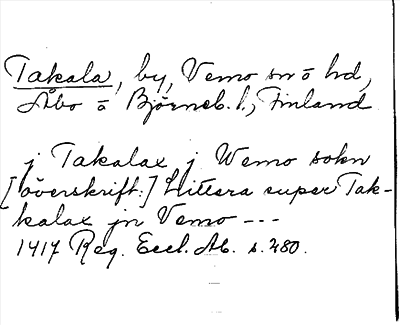 Takala, by, Vemo sn o hd,
Åbo o Björneb. l., Finland
j Takalax j Wemo sokn
[överskrift:] Littera super Tak-
kalax jn Vemo ---
1417 Reg. Eccl. Ab. s. 280.